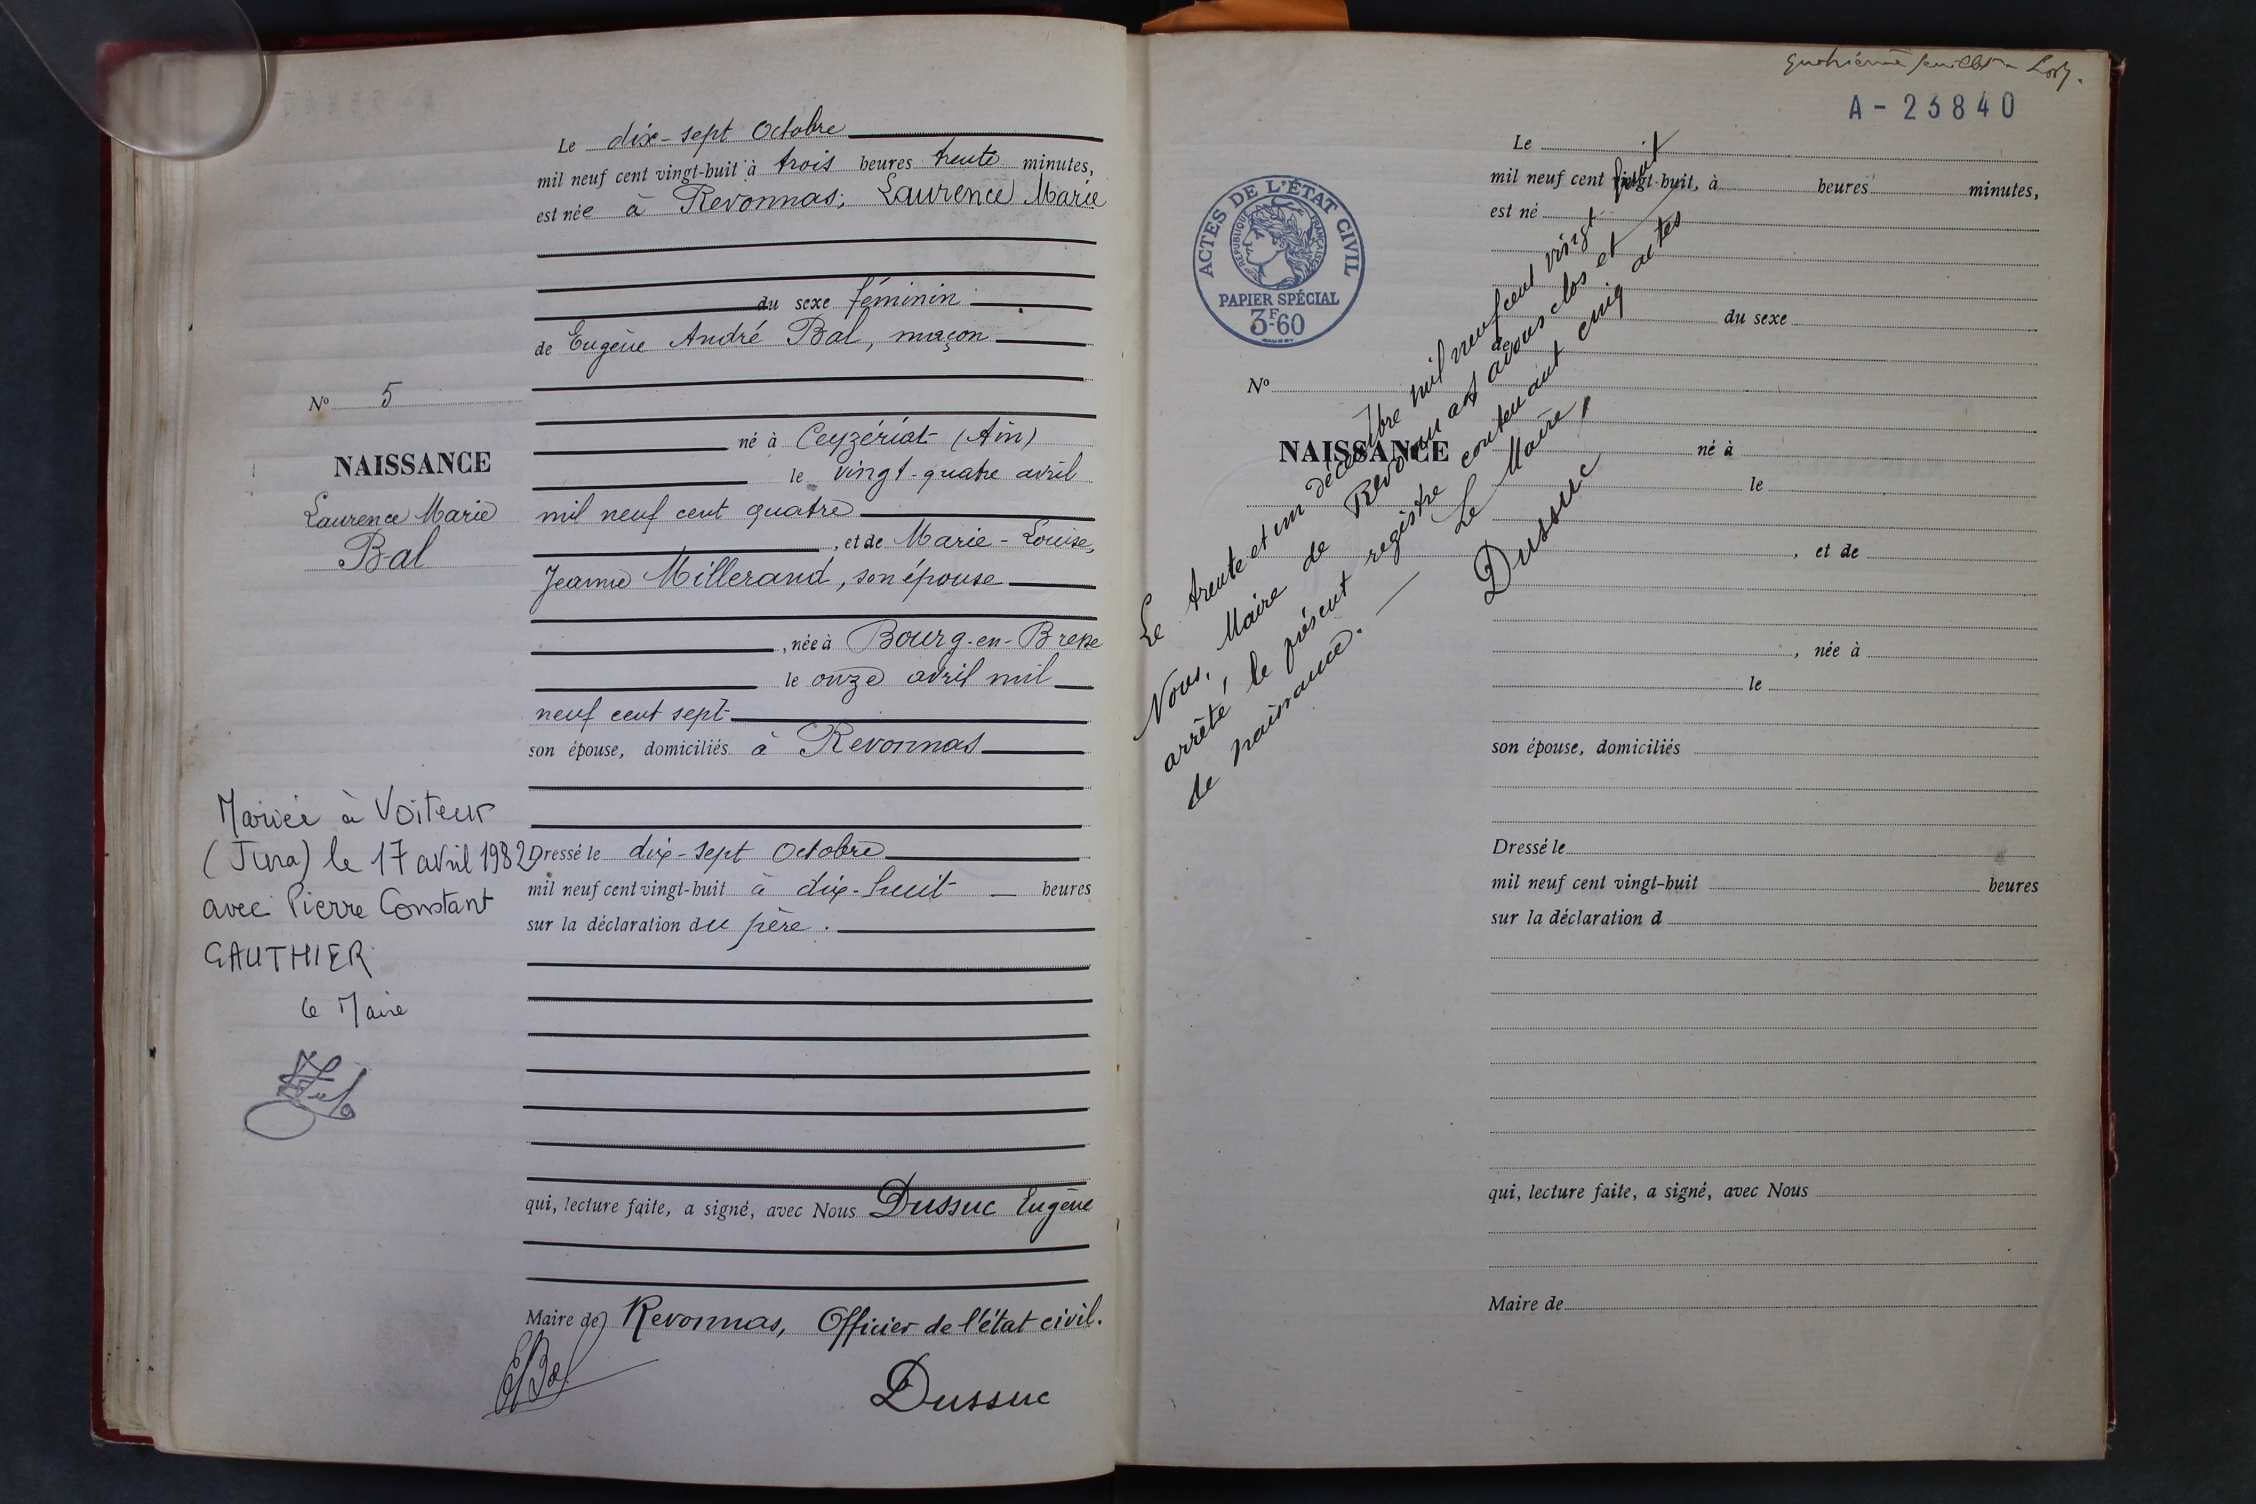 Le dix-sept Octobre
mil neuf cent vingt-huit à trois heures trente minutes,
est née à Revonnas; Laurence Marie
du sexe féminin
de Eugène André Bal, maçon
né à Ceyzériat (Ain)
le vingt-quatre avril
mil neuf cent quatre
, et de Marie-Louise,
Jeanne Millerand, son épouse
, née à Bourg-en-Bresse
le onze avril mil
neuf cent sept
son épouse, domiciliés à Revonnas
Dressé le dix-sept Octobre
mil neuf cent vingt-huit à dix-huit heures
sur la déclaration du père.
qui, lecture faite, a signé, avec Nous Dussuc Eugène
Maire de Revonnas, Officier de l'état civil.
EBal
Dussuc
No 5
NAISSANCE
Laurence Marie
Bal
Mariée à Voiteur
(Jura) le 17 avril 1982
avec Pierre Constant
GAUTHIER
Le Maire
A - 23840
ACTES DE L'ÉTAT CIVIL
RÉPUBLIQUE FRANÇAISE
PAPIER SPÉCIAL
3F-60
No
NAISSANCE
Le
mil neuf cent vingt-huit, à heures minutes,
est né
du sexe
de
né à
le
, et de
, née à
le
son épouse, domiciliés
Dressé le
mil neuf cent vingt-huit heures
sur la déclaration d
qui, lecture faite, a signé, avec Nous
Maire de
Le trente et un décembre mil neuf cent vingt huit
Nous, Maire de Revonnas avons clos et
arrêté, le présent registre contenant cinq actes
de naissance.
Le Maire,
Dussuc